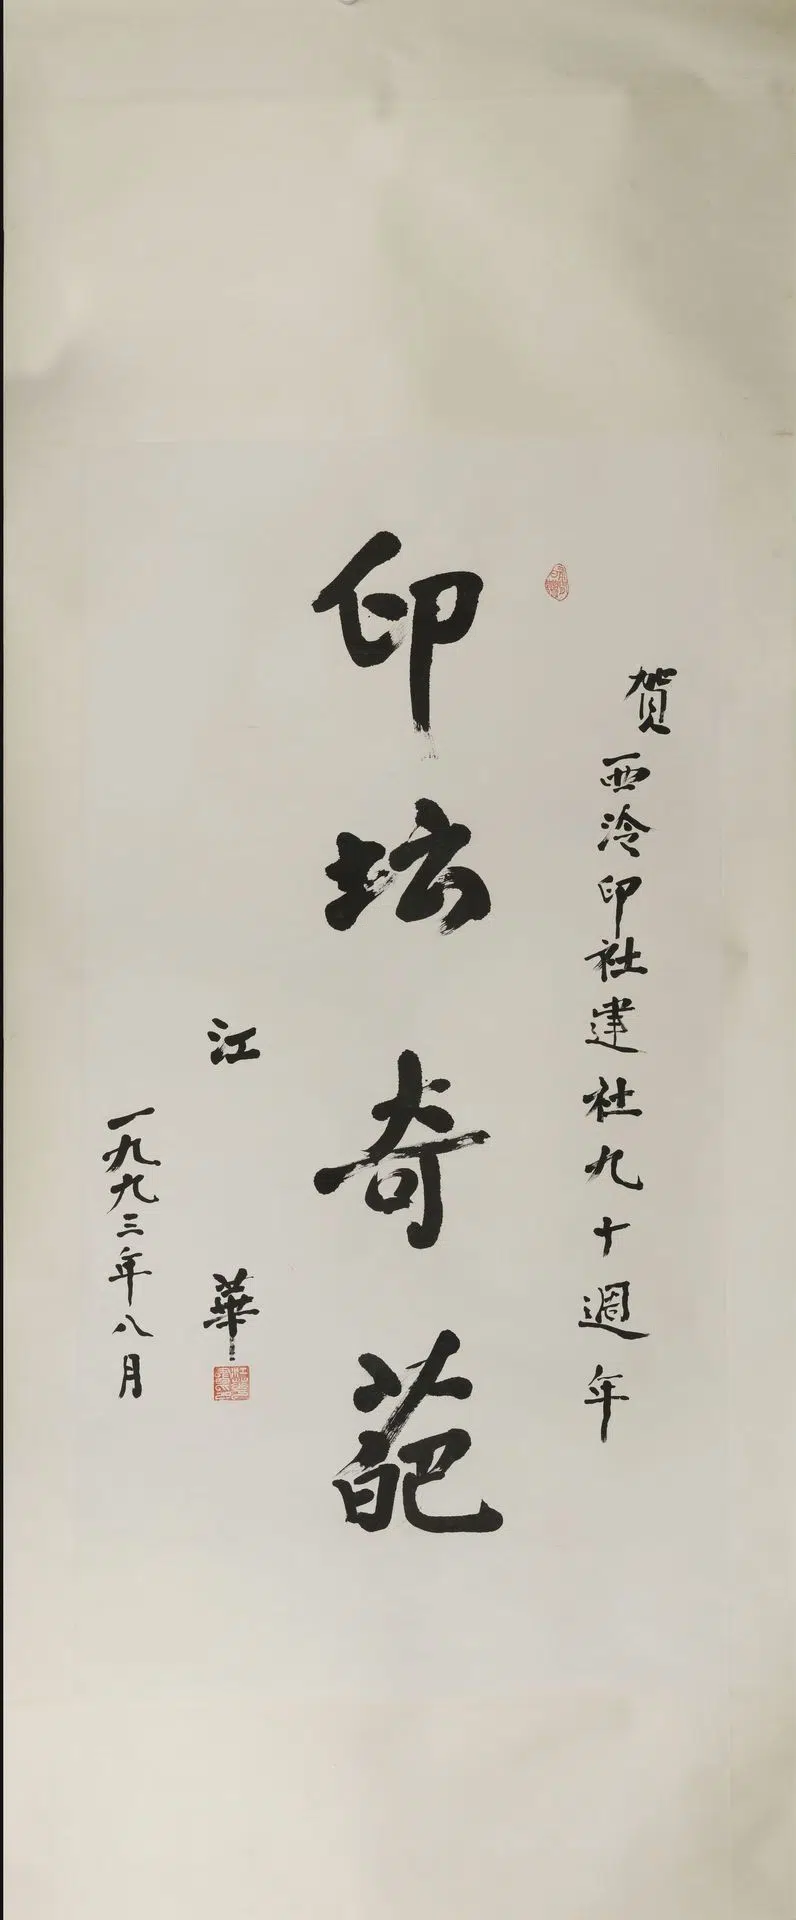 贺西泠印社建社九十週年
印坛奇葩
江華
一九九三年八月